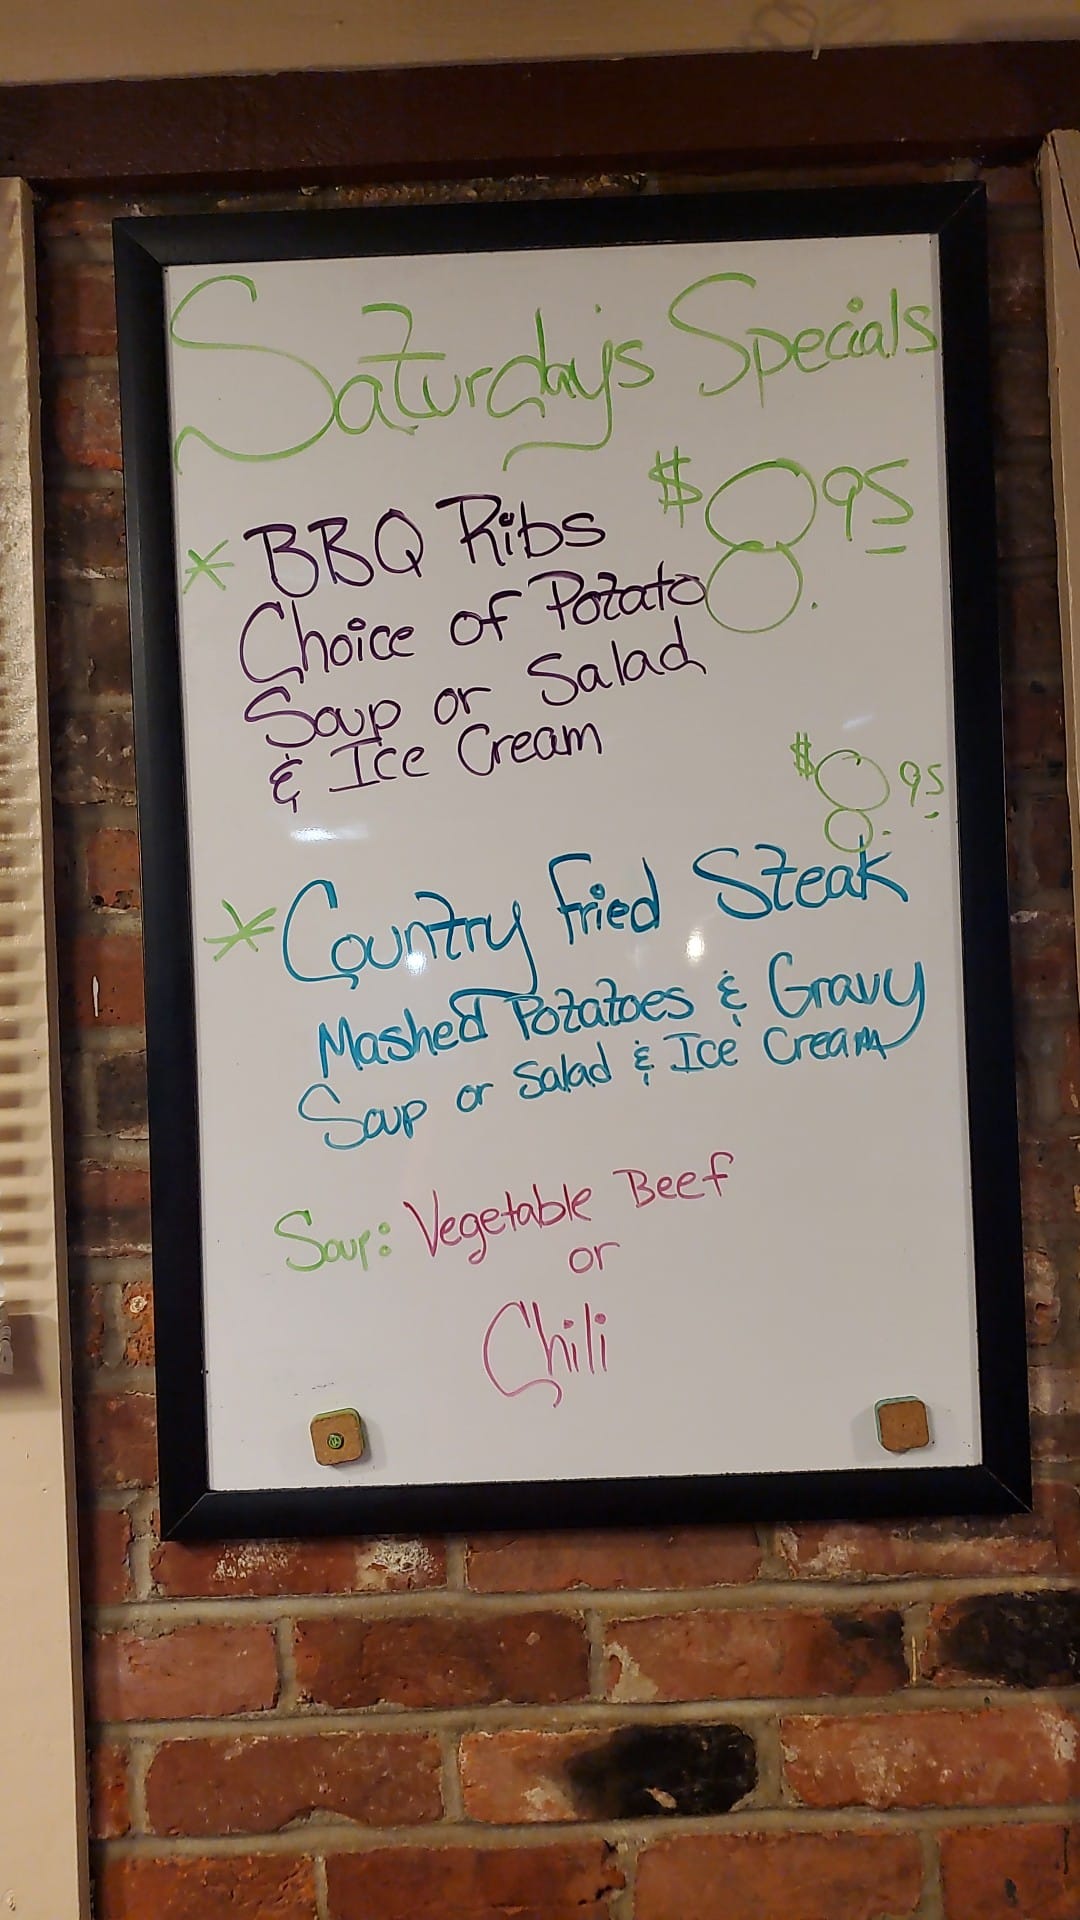 Saturday's Specials
* BBQ Ribs $8.95
Choice of Potato
Soup or Salad
& Ice Cream
$8.95
* Country Fried Steak
Mashed Potatoes & Gravy
Soup or Salad & Ice Cream
Soup: Vegetable Beef
or
Chili